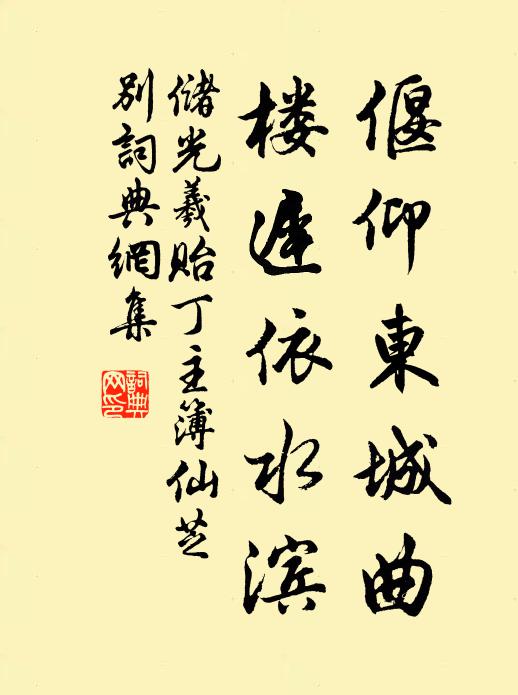 偃仰東城曲
楼遲依水滨
储光羲贻丁主簿仙芝
别詞典網集
詞典
网印